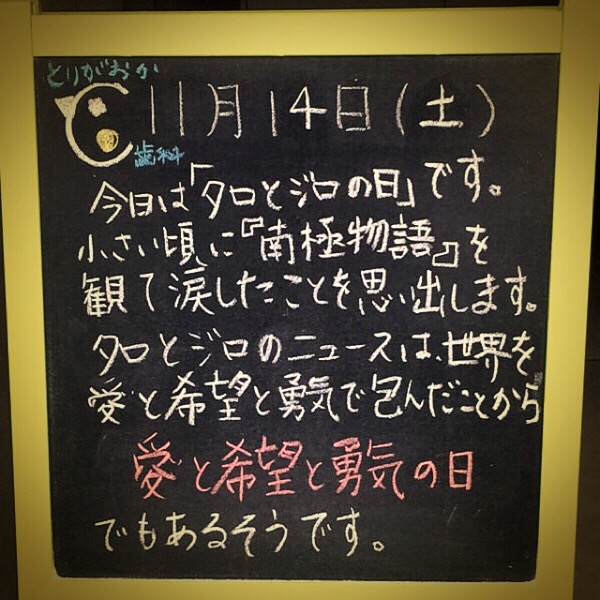 とりがおか
歯科
11月14日(土)
今日は「タロとジロの日」です。
小さい頃に『南極物語』を
観て涙したことを思い出します。
タロとジロのニュースは、世界を
愛と希望と勇気で包んだことから
愛と希望と勇気の日
でもあるそうです。